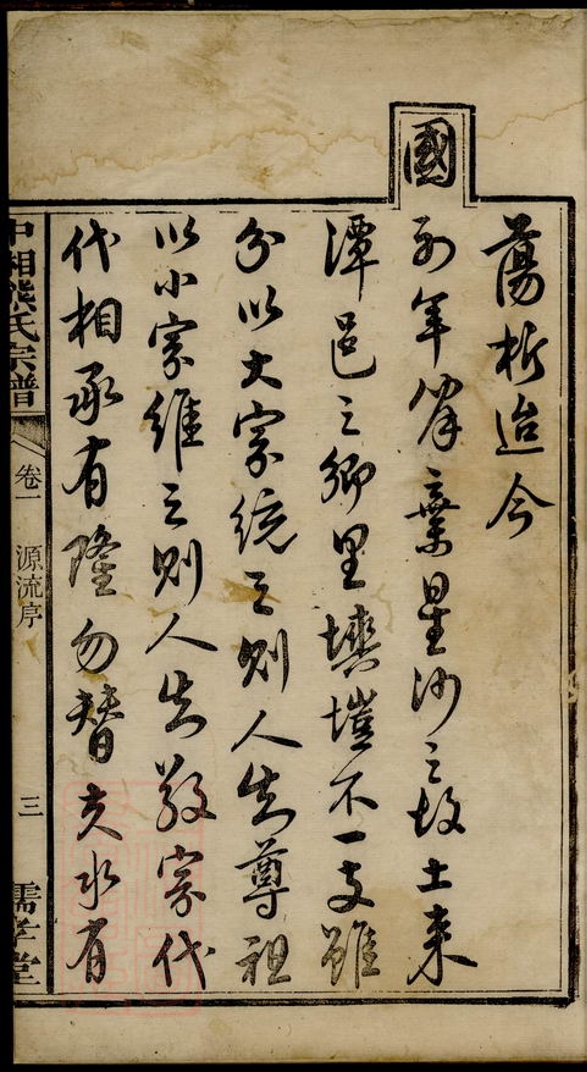 蕩析迨今
國
初年棄星沙之故土來
潭邑之鄉里不一支雖
分以大宗統之則人知尊祖
以小宗維之則人知敬宗代
代相承有隆勿替夫水有
中湘熊氏宗譜
卷一 源流序
三
儒孝堂